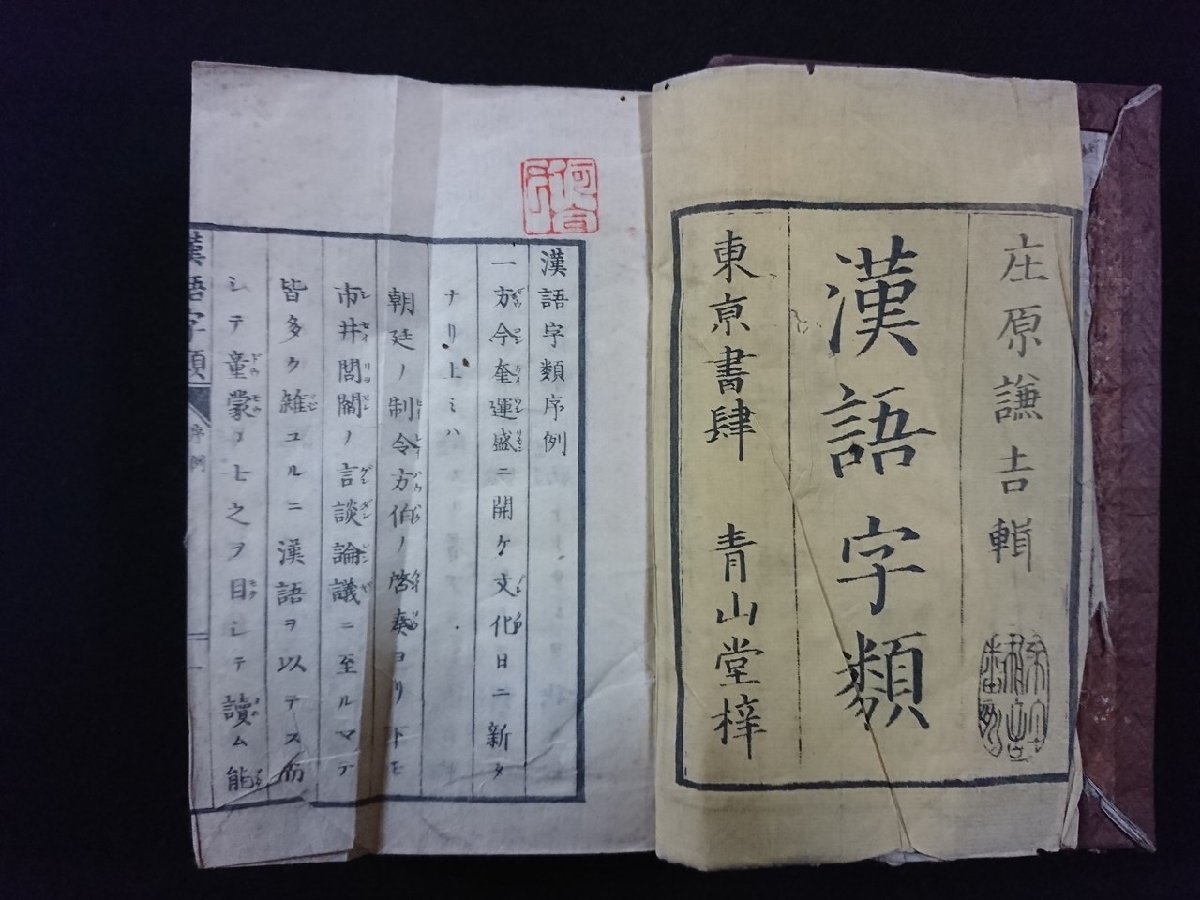 庄原謙吉輯
漢語字類
東京書肆　青山堂梓
漢語字類序例
一方今奎運盛ニ開ケ文化日ニ新タ
ナリ上ミハ
朝廷ノ制令方伯ノ啓奏ヨリ下モ
市井閭閻ノ言談論議ニ至ルマテ
皆多ク雑ユルニ漢語ヲ以テス而
シテ童蒙ノ士之ヲ目シテ讀ム能
漢語字類
序例
一